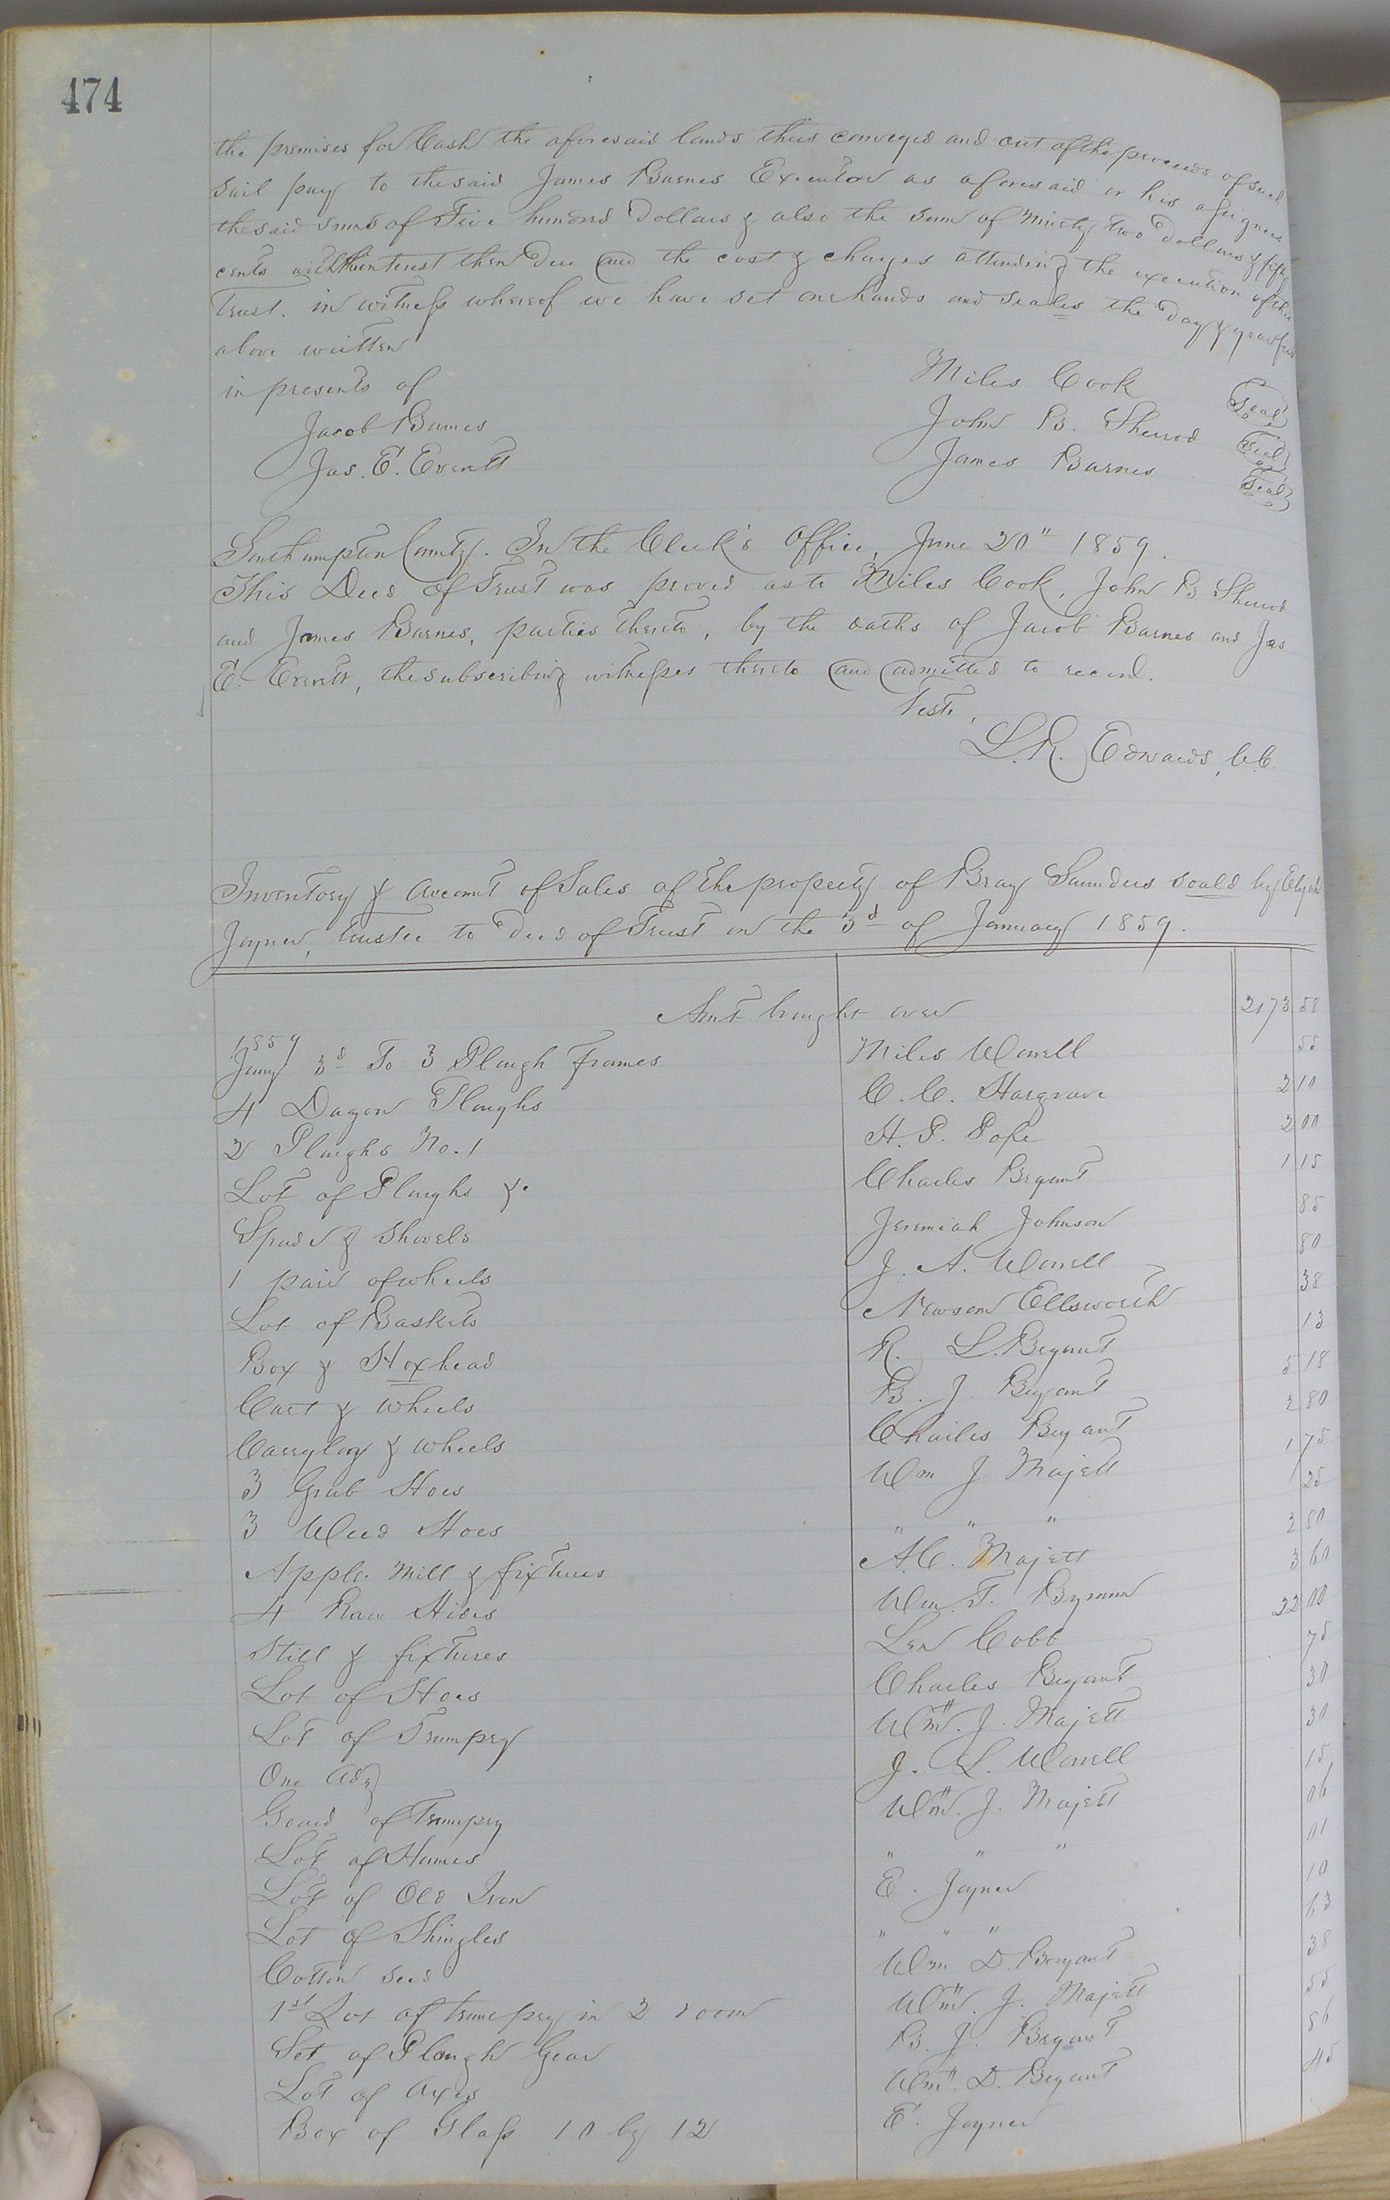 474
the premises for Cash the aforesaid lands thus conveyed and out of the proceeds of such
sail pay to the said James Barnes Executor as aforesaid or his assignees
the said sums of Five hundred Dollars & also the sum of Ninety two Dollars & fifty
cents with interest then Due and the cost & charges attending the execution of this
Trust. in witness whereof we have set our hands and seales the Day & year first
above written
in presents of Miles Cook Seal
Jacob Barnes John B. Sherrod Seal
Jas. E. Everett James Barnes Seal
Southampton County. In the Clerk's Office, June 20" 1859.
This Deed of Trust was proved as to Miles Cook, John B Sherrod
and James Barnes, parties thereto, by the oaths of Jacob Barnes and Jas
E. Everett, the subscribing witnesses thereto and admitted to record.
Teste,
L. R. Edwards, C.C.
Inventory & Account of Sales of the property of Bray Saunders soald by Elijah
Joyner, Trustee to Deed of Trust on the 3d of January 1859.
Amt brought over 2173 58
1859
Jany 3d To 3 Plough Frames Miles Worrell 55
4 Dagon Ploughs C. C. Hargrave 2 10
2 Ploughs No. 1 H. P. Pope 2 00
Lot of Ploughs &. Charles Bryant 1 15
Spade & Shovels Jeremiah Johnson 85
1 pair of wheels J. A. Worrell 80
Lot of Baskets Newsom Ellsworth 38
Box & Hoxhead R. L. Bryant 13
Cart & Wheels B. J. Bryant 5 18
Carrylog & Wheels Charles Bryant 2 80
3 Grub Hoes Wm J Majett 1 75
3 Weed Hoes " " " 25
Apple Mill & fixtures A. C. Majett 2 80
4 Raw Hides Wm. T. 3 60
Still & fixtures Len Cobb 22 00
Lot of Hoes Charles Bryant 75
Lot of Trumpry Wm. J. Majett 30
One Adz J. L. Worrell 30
Gourd of Trumpry Wm. J. Majett 15
Lot of Hames " " " 06
Lot of Old Iron E. Joyner 01
Lot of Shingles " " " 10
Cotton seed Wm D. Bryant 63
1st Lot of trumpry in 2 room Wm. J. Majett 38
Set of Plough Gear B. J. Bryant 55
Lot of Axes Wm. D. Bryant 86
Box of Glass 10 by 12 E. Joyner 45